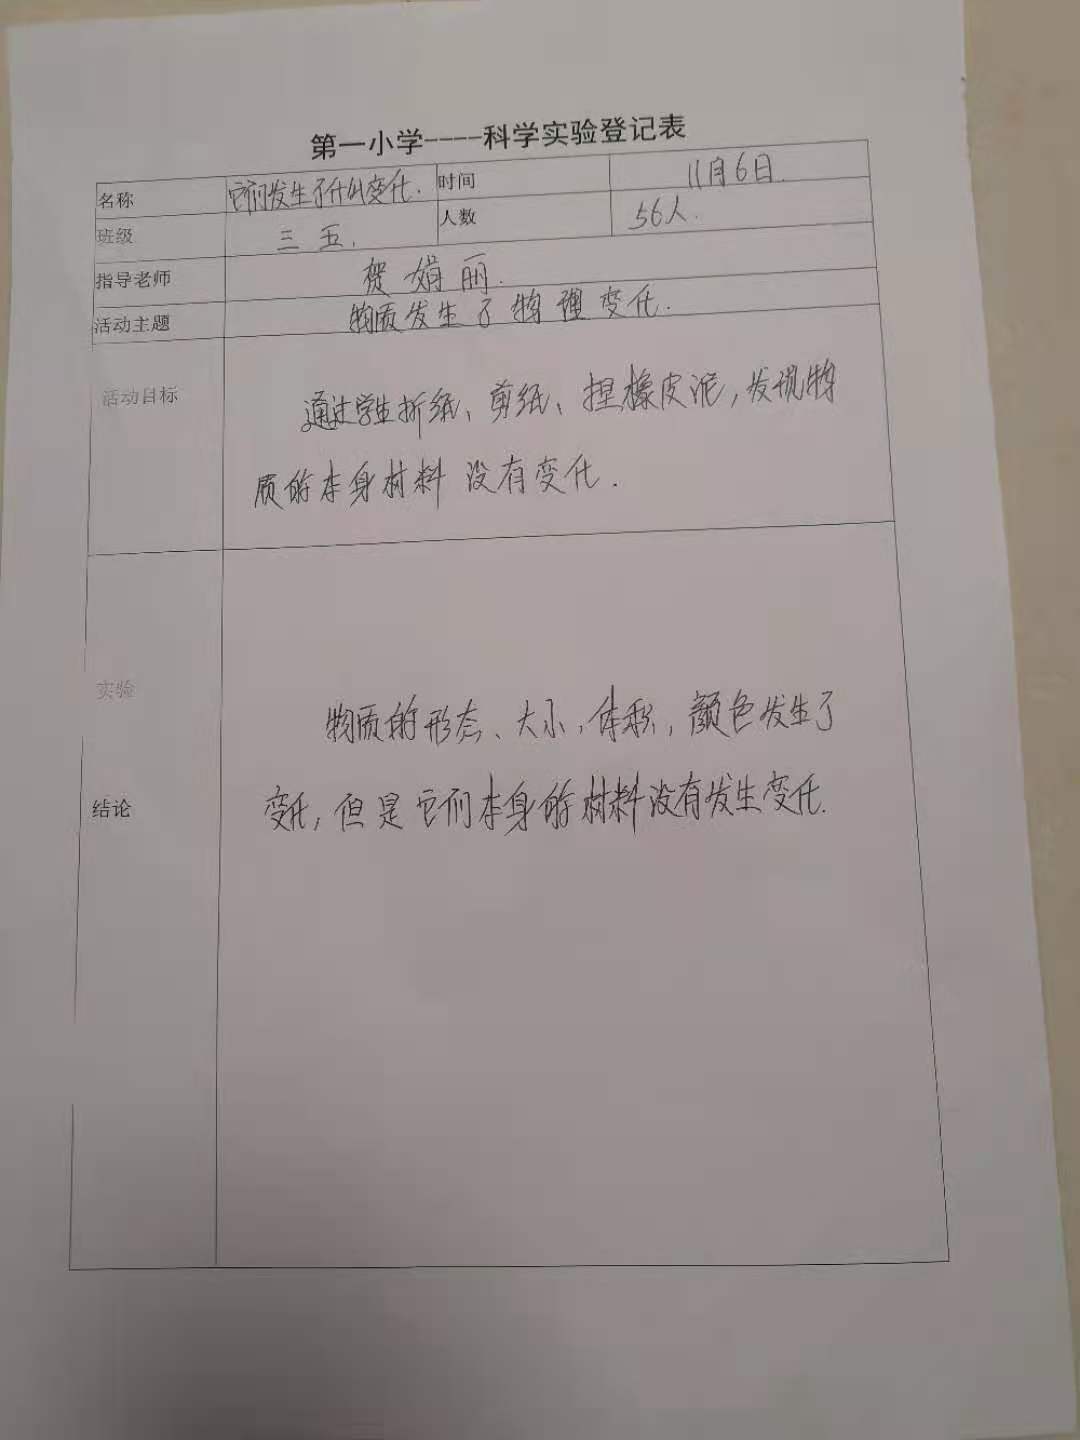 第一小学----科学实验登记表
名称 它们发生了什么变化. 时间 11月6日.
班级 三 五. 人数 56人.
指导老师 贺娟丽.
活动主题 物质发生了物理变化.
活动目标 通过学生折纸、剪纸、捏橡皮泥,发现物
质的本身材料没有变化.
实验
物质的形态、大小,体积,颜色发生了
结论 变化,但是它们本身的材料没有发生变化.